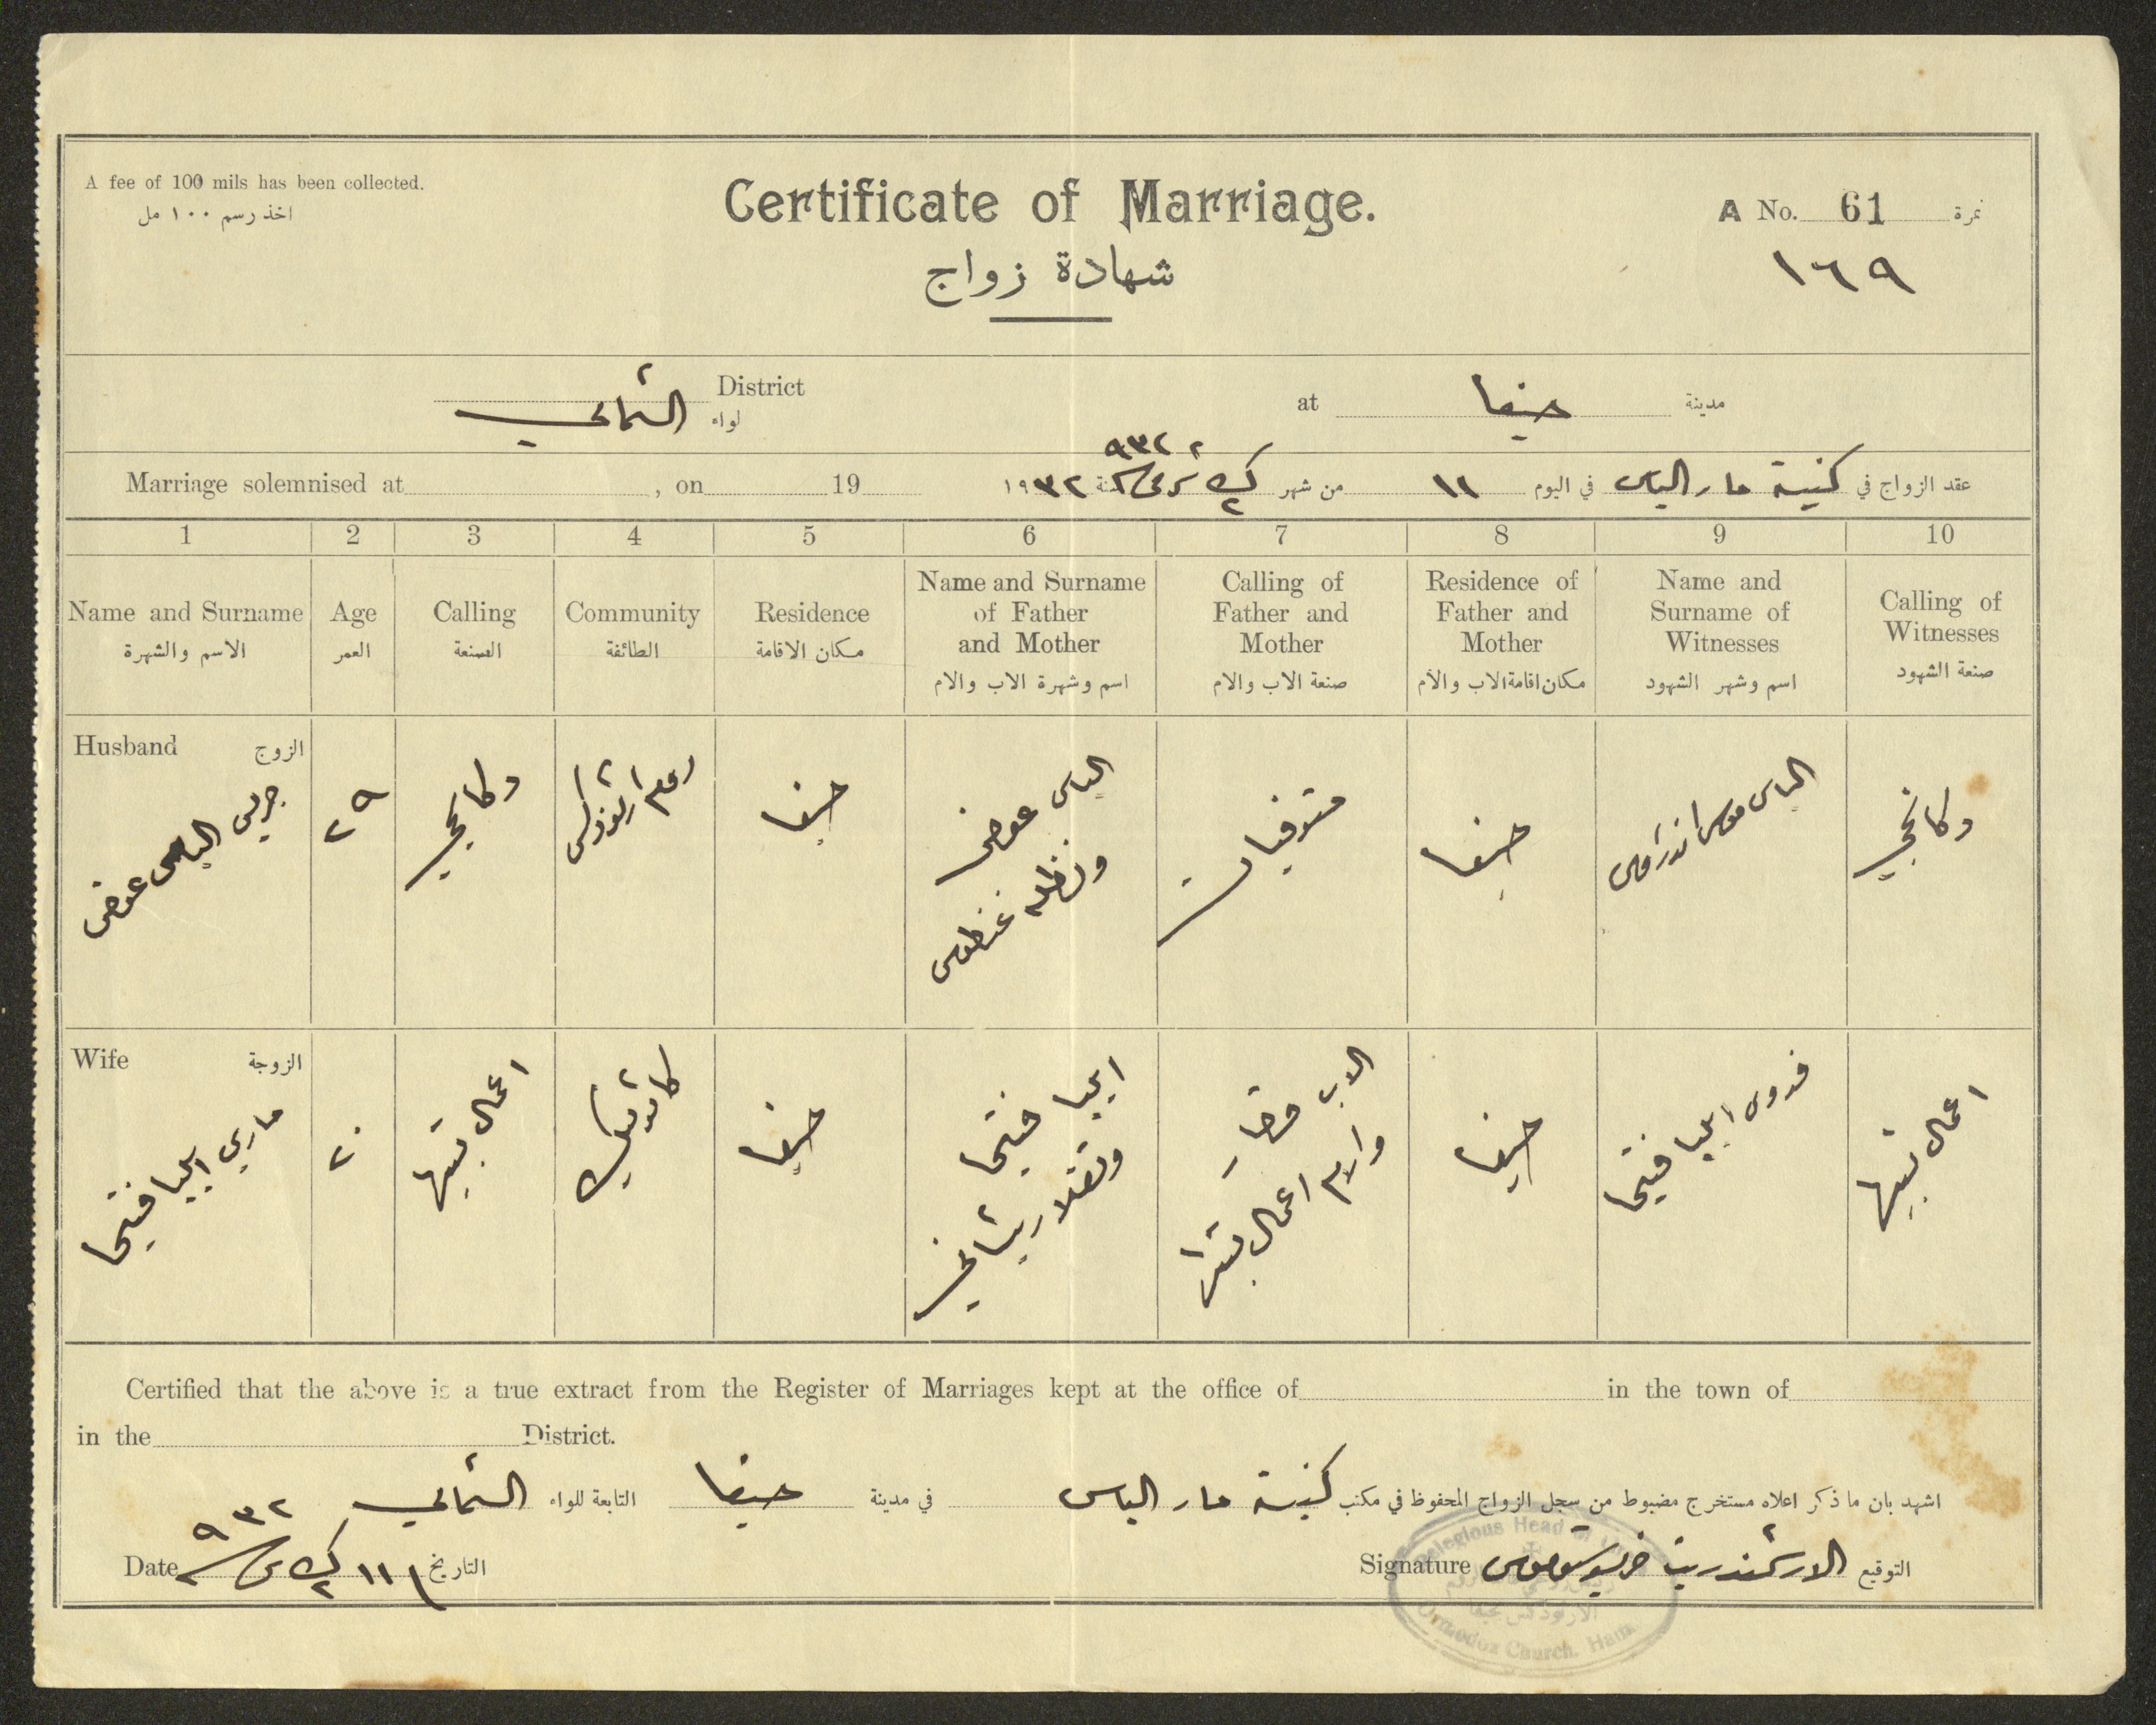 A fee of 100 mils has been collected.
اخذ رسم ١٠٠ مل
Certificate of Marriage.
شهادة زواج
A No. 61 نمرة
١٦٩
District
لواء الشمالي
at حيفا مدينة
٩٣٢
Marriage solemnised at , on 19
عقد الزواج في كنيسة مار الياس في اليوم ١١ من شهر ك٢ سنة ١٩٣٢
1 2 3 4 5 6 7 8 9 10
Name and Surname
الاسم والشهرة
Age
العمر
Calling
الصنعة
Community
الطائفة
Residence
مكان الاقامة
Name and Surname
of Father
and Mother
اسم وشهرة الاب والام
Calling of
Father and
Mother
صنعة الاب والام
Residence of
Father and
Mother
مكان اقامة الاب والام
Name and
Surname of
Witnesses
اسم وشهر الشهود
Calling of
Witnesses
صنعة الشهود
Husband الزوج
جريس الياس عوض
٢٩
دكانجي
روم ارثوذكس
حيفا
الياس عوض
ونظله غنطوس
متوفيان
حيفا
الياس موسى اندراوس
دكانجي
Wife الزوجة
ماري ايليا فتيحا
٢٠
اعمال بيتها
كاثوليك
حيفا
ايليا فتيحا
وتقلا ريشاني
الاب
والام اعمال بيتها
حيفا
فدوى ايليا فتيحا
اعمال بيتها
Certified that the above is a true extract from the Register of Marriages kept at the office of in the town of
in the District.
اشهد بان ما ذكر اعلاه مستخرج مضبوط من سجل الزواج المحفوظ في مكتب كنيسة مار الياس في مدينة حيفا التابعة للواء الشمالي
Date ١١ ك٢ ٩٣٢ التاريخ
Signature الارشمندريت التوقيع
Religious Head of
الارثوذكس بحيفا
Orthodox Church. Haifa